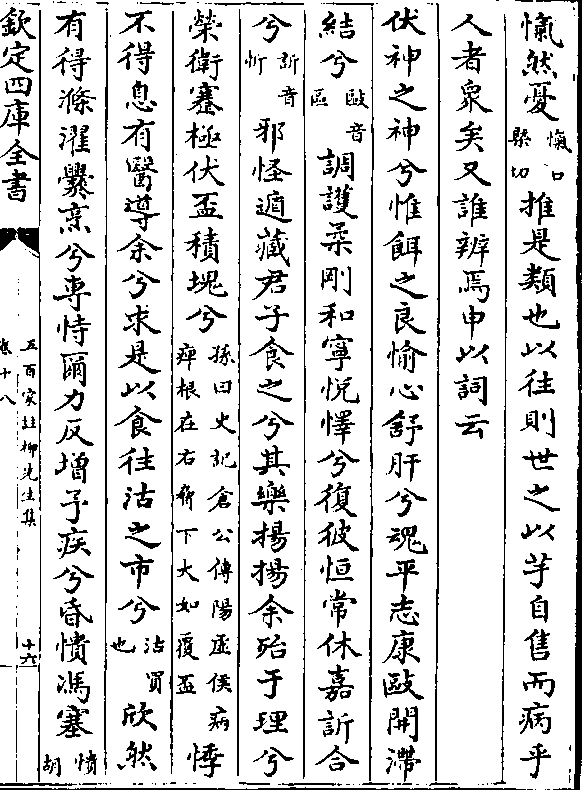 愾然憂愾口槩切推是類也以往則世之以芋自售而病乎
人者衆矣又誰辨焉申以詞云
伏神之神兮惟餌之良愉心舒肝兮魂平志康歐開滯
結兮歐音區調護柔剛和寧悅懌兮復彼恒常休嘉訢合
兮訢音忻邪怪遁藏君子食之兮其樂揚揚余殆于理兮
榮衛蹇極伏盃積塊兮孫曰史記倉公傳陽虛侯病痺根在右脅下大如覆盃悸
不得息有醫導余兮求是以食往沽之市兮沽買也欣然
有得滌濯爨烹兮專恃爾力反增予疾兮昏憒馮塞憒胡
欽定四庫全書
五百家註柳先生集
卷十八
十六